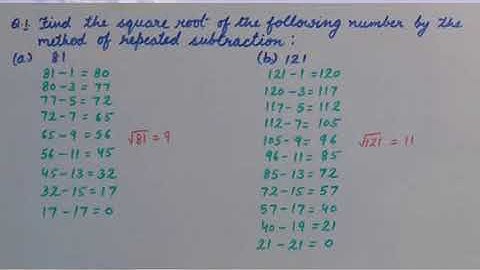 Q.1 Find the square root of the following number by the
method of repeated subtraction:
(a) 81
81 - 1 = 80
80 - 3 = 77
77 - 5 = 72
72 - 7 = 65
65 - 9 = 56
56 - 11 = 45
45 - 13 = 32
32 - 15 = 17
17 - 17 = 0
√81 = 9
(b) 121
121 - 1 = 120
120 - 3 = 117
117 - 5 = 112
112 - 7 = 105
105 - 9 = 96
96 - 11 = 85
85 - 13 = 72
72 - 15 = 57
57 - 17 = 40
40 - 19 = 21
21 - 21 = 0
√121 = 11